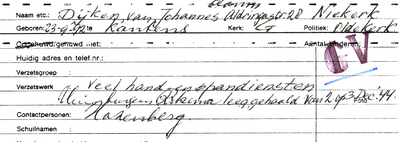 Naam etc.: Dijken van Johannes Waringastr. 28 Niekerk
Geboren: 23-9-'12 te Kantens Kerk: G Politiek: Oldekerk
Ongehuwd/gehuwd met: Aantal kinderen:
Huidig adres en telef.nr.:
Verzetsgroep :
Verzetswerk : veel hand en spandiensten
Huishouden Arkema leeggehaald van 2 op 3 Dec '44.
Contactpersonen: Hazenberg
Schuilnamen :
GV
Foto